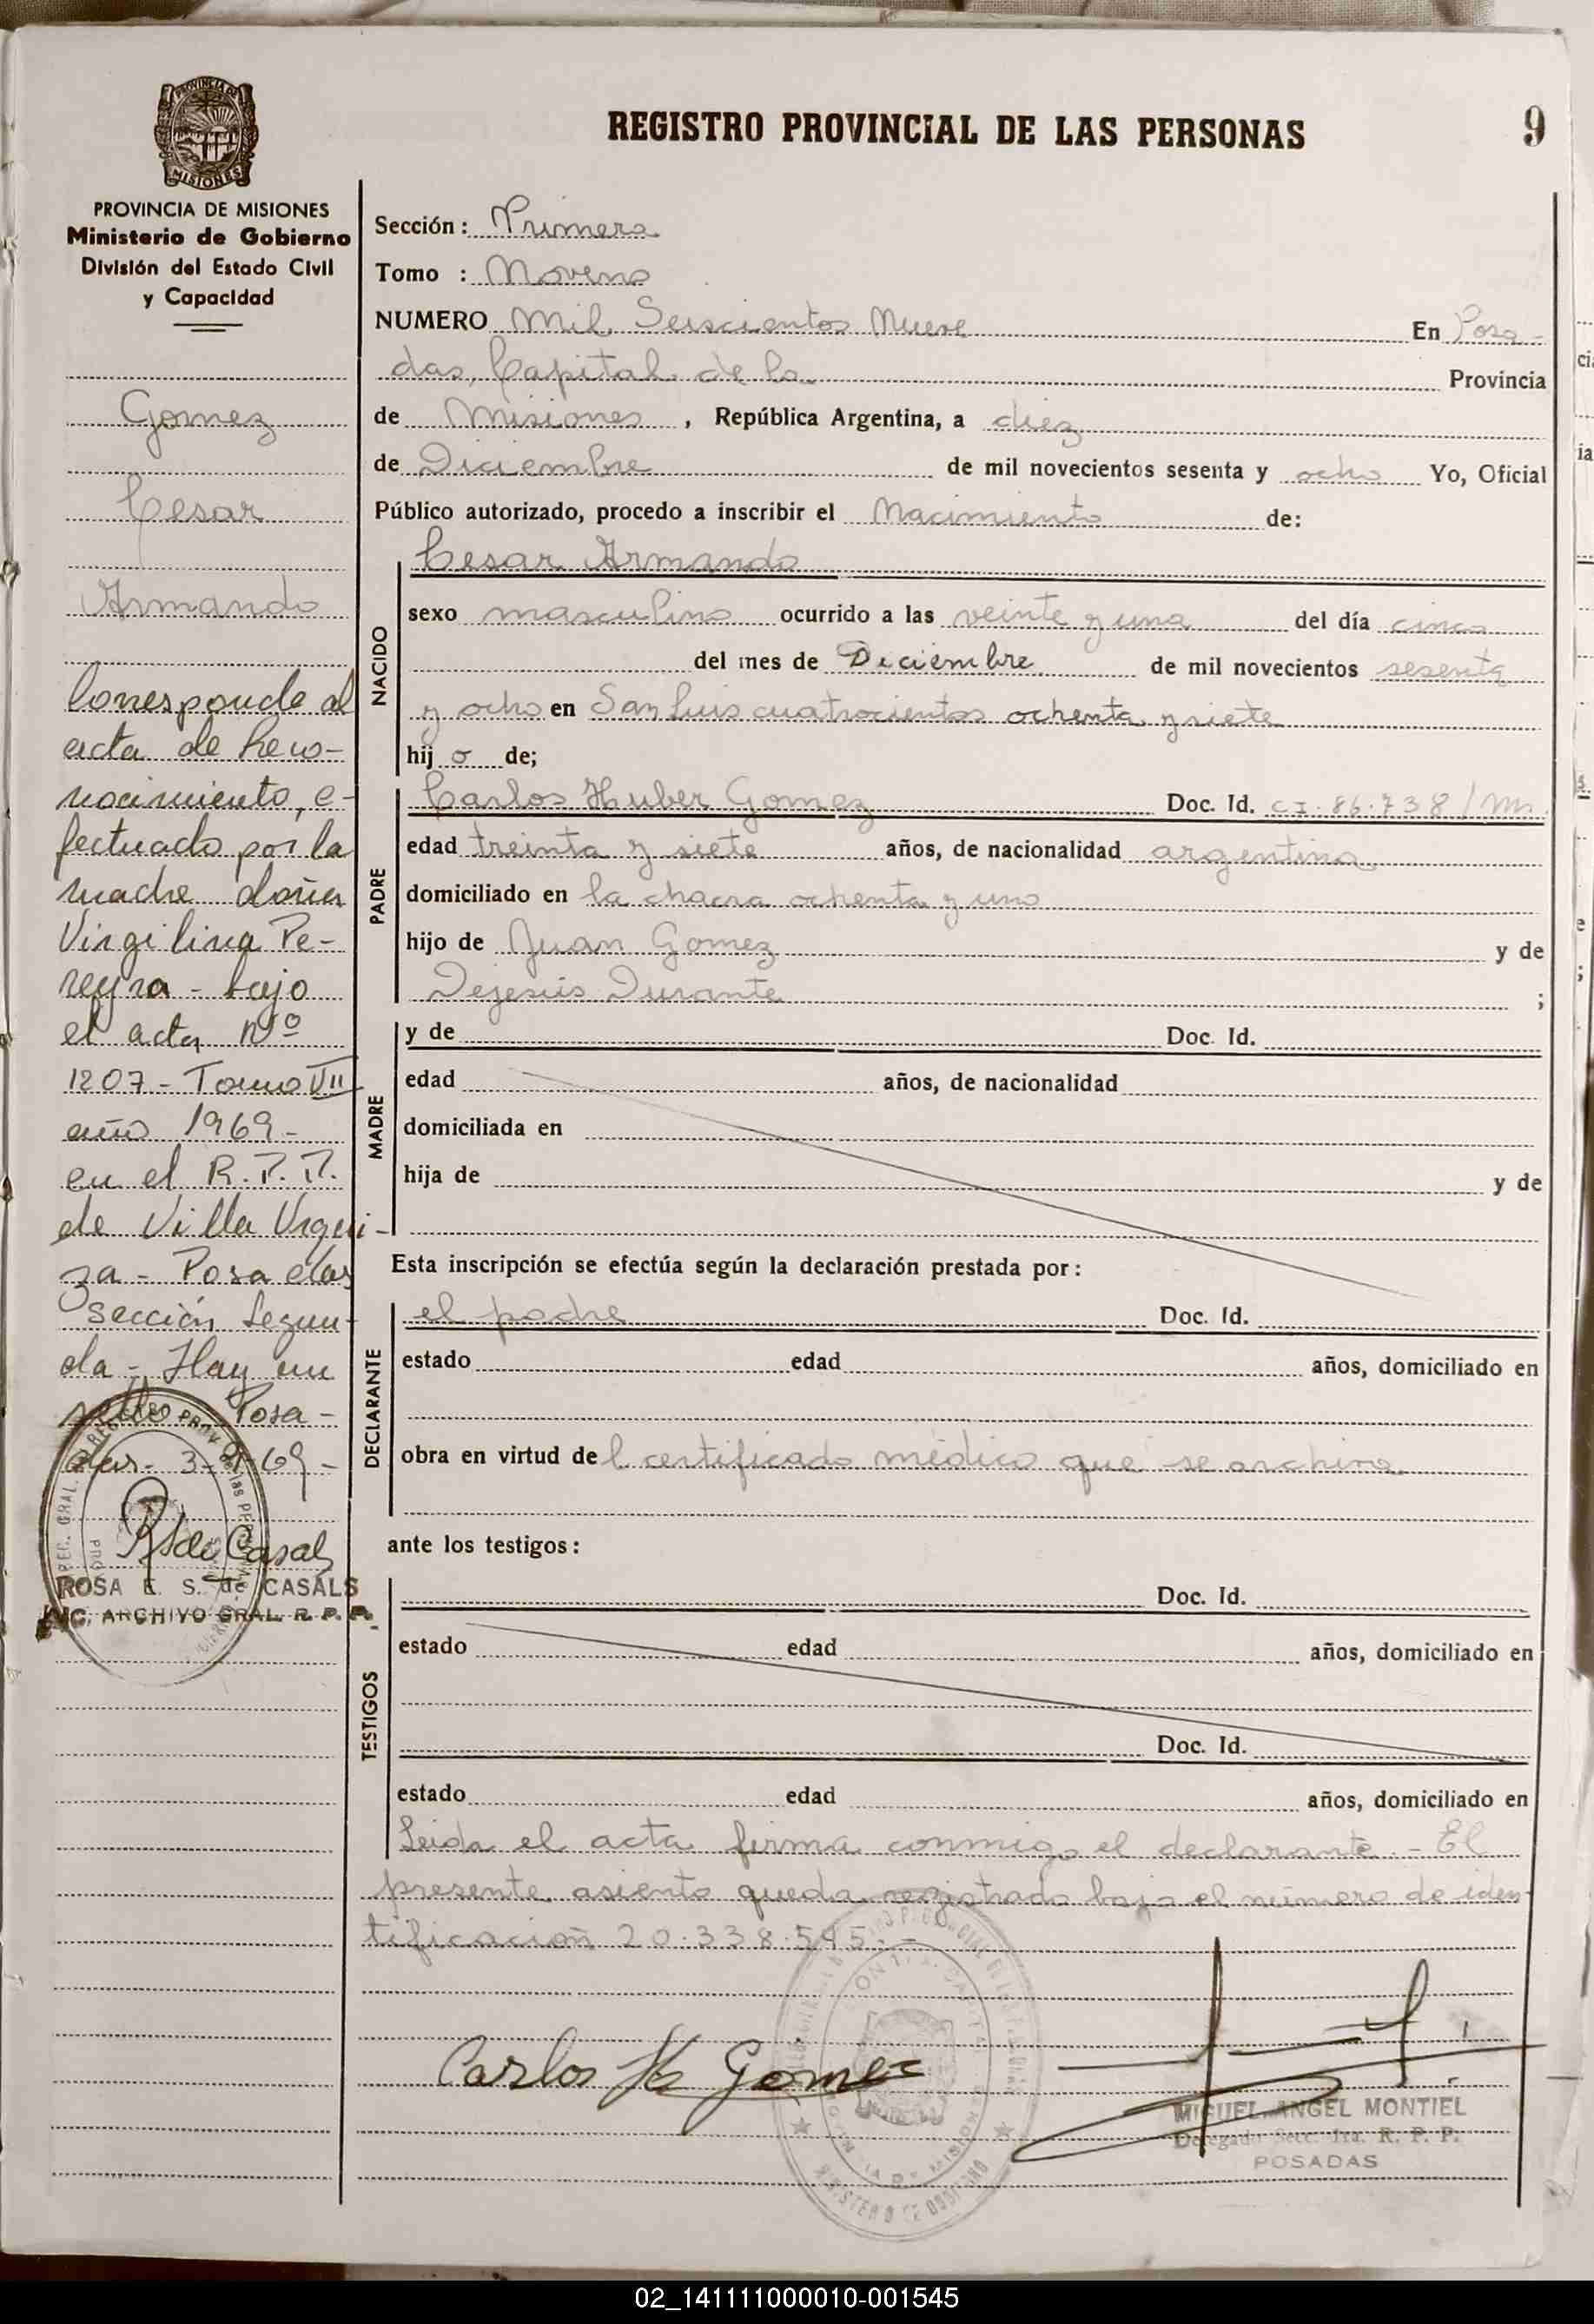 REGISTRO PROVINCIAL DE LAS PERSONAS
9
PROVINCIA DE MISIONES
Ministerio de Gobierno
División del Estado Civil
y Capacidad
Gomez
Cesar
Armando
Corresponde al
acta de Reco-
nocimiento, e-
fectuado por la
madre doña
Virgilina Pe-
reyra - bajo
el acta Nº
1207 - Tomo VII
año 1969 -
en el R.P.P.
de Villa Urqui-
za - Posadas
sección Segun-
da - Hay un
sello Posa-
das - 69 -
ROSA E. S. de CASALS
ARCHIVO GRAL. R. P. P.
Sección: Primera
Tomo : Noveno
NUMERO Mil Seiscientos Nueve En Posa-
das, Capital de la Provincia
de Misiones, República Argentina, a diez
de Diciembre de mil novecientos sesenta y ocho Yo, Oficial
Público autorizado, procedo a inscribir el Nacimiento de:
NACIDO
Cesar Armando
sexo masculino ocurrido a las veinte y una del día cinco
del mes de Diciembre de mil novecientos sesenta
y ocho en San Luis cuatrocientos ochenta y siete
hijo de;
PADRE
Carlos Huber Gomez Doc. Id. CI. 86.738/Ms.
edad treinta y siete años, de nacionalidad argentina
domiciliado en la chacra ochenta y uno
hijo de Juan Gomez y de
Dejesús Durante ;
MADRE
y de Doc. Id.
edad años, de nacionalidad
domiciliada en
hija de y de
Esta inscripción se efectúa según la declaración prestada por:
DECLARANTE
el padre Doc. Id.
estado edad años, domiciliado en
obra en virtud del certificado médico que se archiva
ante los testigos:
TESTIGOS
Doc. Id.
estado edad años, domiciliado en
Doc. Id.
estado edad años, domiciliado en
Leida el acta firma conmigo el declarante. - El
presente asiento queda registrado bajo el número de iden-
tificación 20.338.595. -
Carlos H Gomez
MIGUEL ANGEL MONTIEL
Delegado Secc. 1ra. R. P. P.
POSADAS
02_141111000010-001545